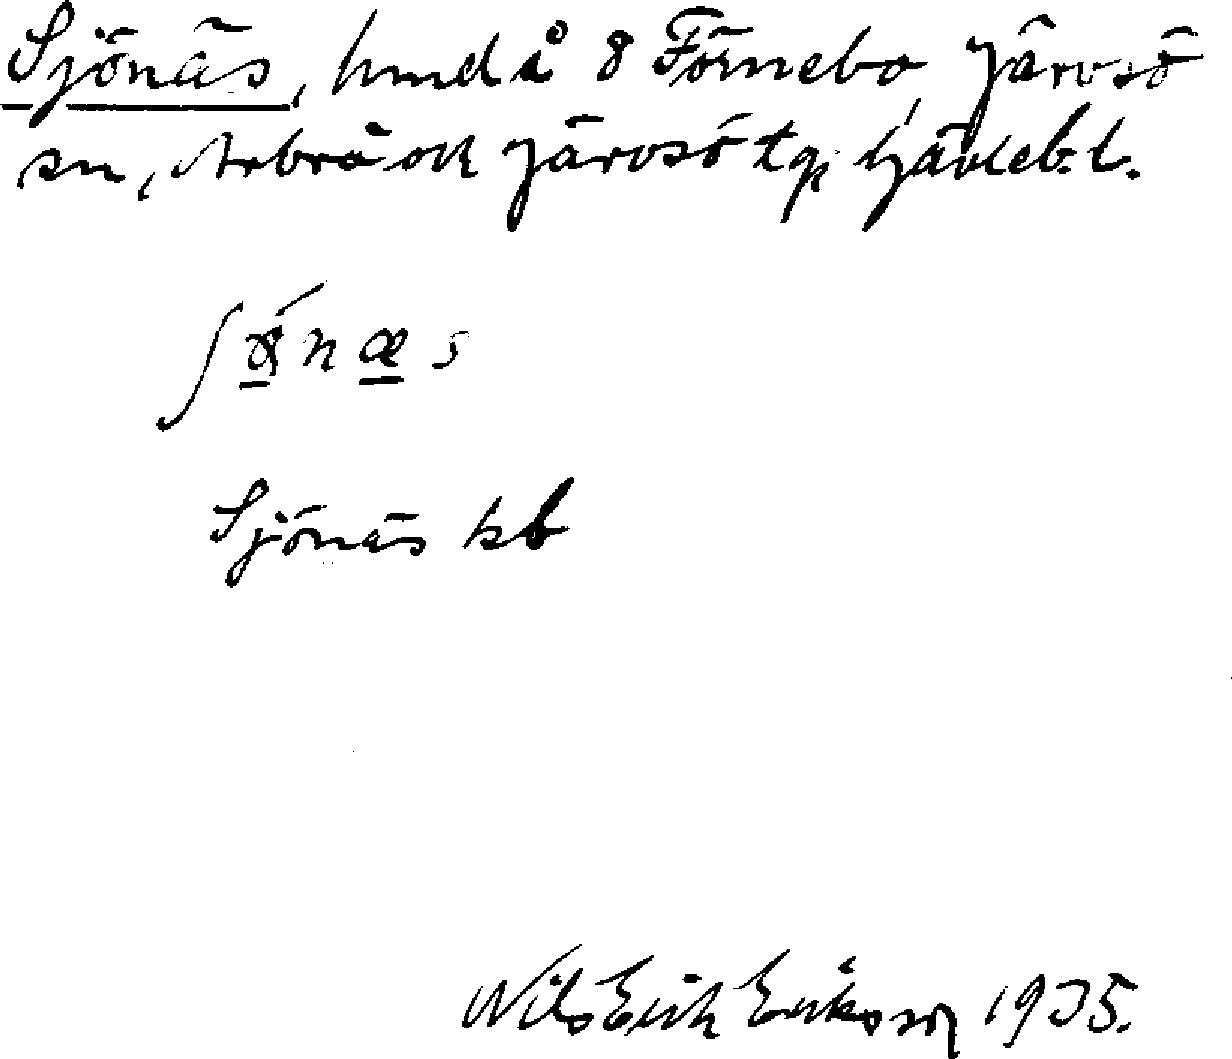 Sjönäs, hmd å 8 Förnebo, Järvsö
sn, Arbrå och Järvsö tg, Gävleb. l.
Sjönäs kb
Nils Erik Eriksson 1935.